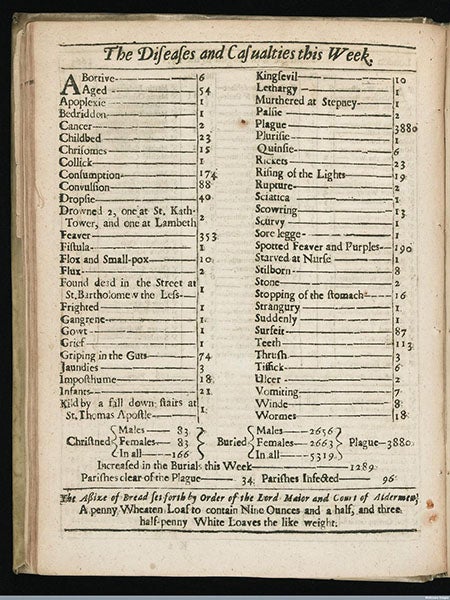 The Diseases and Casualties this Week.
ABortive 6
Aged 54
Apoplexie 1
Bedridden 1
Cancer 2
Childbed 23
Chrisomes 15
Collick 1
Consumption 174
Convulsion 88
Dropsie 40
Drowned 2, one at St. Kath-
Tower, and one at Lambeth 2
Feaver 353
Fistula 1
Flox and Small-pox 10
Flux 2
Found dead in the Street at
St. Bartholomew the Less 1
Frighted 1
Gangrene 1
Gowt 1
Grief 1
Griping in the Guts 74
Jaundies 3
Imposthume 18
Infants 21
Kild by a fall down stairs at
St. Thomas Apostle 1
Kingsevil 10
Lethargy 1
Murthered at Stepney 1
Palsie 2
Plague 3880
Plurisie 1
Quinsie 6
Rickets 23
Rising of the Lights 19
Rupture 2
Sciatica 1
Scowring 13
Scurvy 1
Sore legge 1
Spotted Feaver and Purples 190
Starved at Nurse 1
Stilborn 8
Stone 2
Stopping of the stomach 16
Strangury 1
Suddenly 1
Surfeit 87
Teeth 113
Thrush 3
Tissick 6
Ulcer 2
Vomiting 7
Winde 8
Wormes 18
Christned { Males 83 Females 83 In all 166 } Buried { Males 2656 Females 2663 In all 5319 } Plague 3880
Increased in the Burials this Week 1289
Parishes clear of the Plague 34 Parishes Infected 96
The Assize of Bread set forth by Order of the Lord Maior and Court of Aldermen,
A penny Wheaten Loaf to contain Nine Ounces and a half, and three
half-penny White Loaves the like weight.